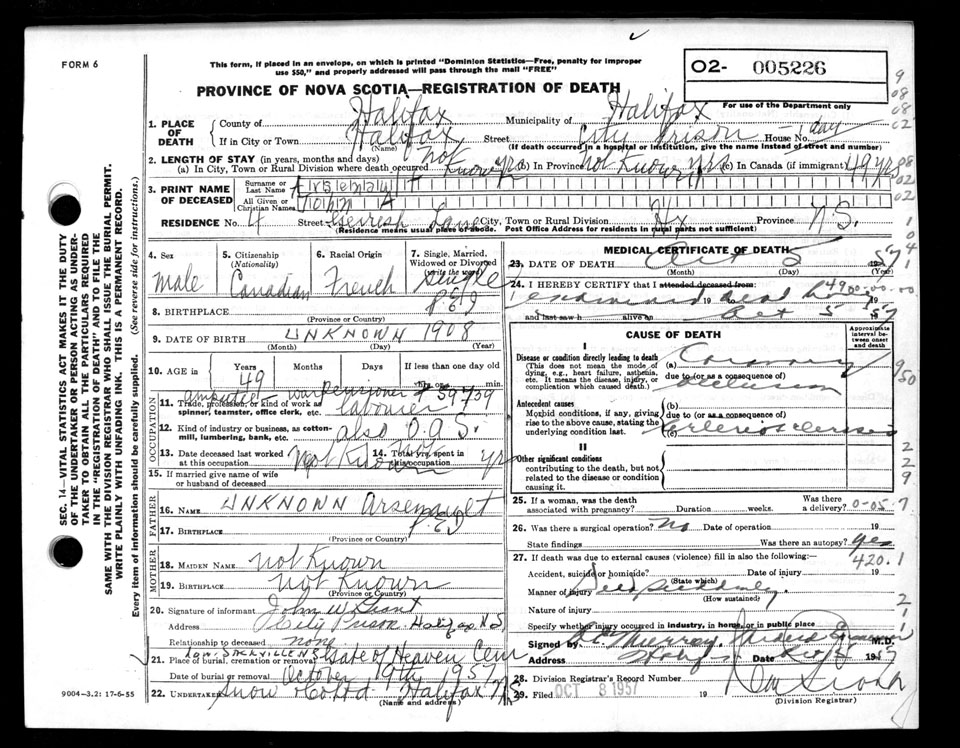 FORM 6
This form, if placed in an envelope, on which is printed "Dominion Statistics—Free, penalty for improper
use $50," and properly addressed will pass through the mail "FREE"
O2- 005226
PROVINCE OF NOVA SCOTIA—REGISTRATION OF DEATH
For use of the Department only
1. PLACE OF DEATH
County of Halifax Municipality of Halifax
If in City or Town Halifax Street City Prison House No. 1 day
(Name) (If death occurred in a hospital or institution, give the name instead of street and number)
2. LENGTH OF STAY (in years, months and days)
(a) In City, Town or Rural Division where death occurred not known yrs (b) In Province not known yrs (c) In Canada (if immigrant) 49 yrs
3. PRINT NAME OF DECEASED
Surname or Last Name
All Given or Christian Names John A
RESIDENCE No. 4 Street Lane City, Town or Rural Division Hx Province N.S.
(Residence means usual place of abode. Post Office Address for residents in rural parts not sufficient)
4. Sex male
5. Citizenship (Nationality) Canadian
6. Racial Origin French
7. Single, Married, Widowed or Divorced (write the word) Single
8. BIRTHPLACE P.E.I
(Province or Country)
9. DATE OF BIRTH UNKNOWN 1908
(Month) (Day) (Year)
10. AGE in Years 49 Months Days If less than one day old
hrs. or min.
OCCUPATION
amputee - war pensioner
11. Trade, profession, or kind of work as spinner, teamster, office clerk, etc. labourer
12. Kind of industry or business, as cotton-mill, lumbering, bank, etc. also O.A.S.
13. Date deceased last worked at this occupation Not Known
14. Total yrs. spent in this occupation yrs
15. If married give name of wife or husband of deceased
FATHER
16. NAME UNKNOWN Arsenault
17. BIRTHPLACE P.E.I
(Province or Country)
MOTHER
18. MAIDEN NAME not Known
19. BIRTHPLACE Not Known
(Province or Country)
20. Signature of informant John W Grant
Address City Prison. Halifax N.S
Relationship to deceased none
21. Place of burial, cremation or removal Low. SACKVILLE NS Gate of Heaven Cem
Date of burial or removal October 19th 1957
22. UNDERTAKER Snow & Co Ltd Halifax NS
(Name and address)
MEDICAL CERTIFICATE OF DEATH
23. DATE OF DEATH Oct 5 1957
(Month) (Day) (Year)
24. I HEREBY CERTIFY that I attended deceased from
examined 19 to dead 19
and last saw h alive on Oct 5 57
CAUSE OF DEATH
Approximate interval between onset and death
I
Disease or condition directly leading to death
(This does not mean the mode of dying, e.g., heart failure, asthenia, etc. It means the disease, injury, or complication which caused death.)
(a) Coronary
due to (or as a consequence of)
occlusion
Antecedent causes
Morbid conditions, if any, giving rise to the above cause, stating the underlying condition last.
(b)
due to (or as a consequence of)
(c) arteriosclerosis
II
Other significant conditions
contributing to the death, but not related to the disease or condition causing it.
25. If a woman, was the death associated with pregnancy? Duration weeks. Was there a delivery? 0-05-7
26. Was there a surgical operation? No Date of operation 19
State findings Was there an autopsy? yes
27. If death was due to external causes (violence) fill in also the following: 420.1
Accident, suicide or homicide? Date of injury 19
(State which)
Manner of injury died suddenly.
(How sustained)
Nature of injury
Specify whether injury occurred in industry, in home, or in public place
Signed Murray, Medical Examiner M.D.
Address Hfx Date Oct 1957
28. Division Registrar's Record Number
29. Filed OCT 8 1957 19
(Division Registrar)
SEC. 14—VITAL STATISTICS ACT MAKES IT THE DUTY
OF THE UNDERTAKER OR PERSON ACTING AS UNDERTAKER TO OBTAIN ALL THE PARTICULARS REQUIRED
IN THE "REGISTRATION OF DEATH" AND TO FILE THE
SAME WITH THE DIVISION REGISTRAR WHO SHALL ISSUE THE BURIAL PERMIT.
WRITE PLAINLY WITH UNFADING INK. THIS IS A PERMANENT RECORD.
Every item of information should be carefully supplied. (See reverse side for instructions.)
9004-3.2: 17-6-55